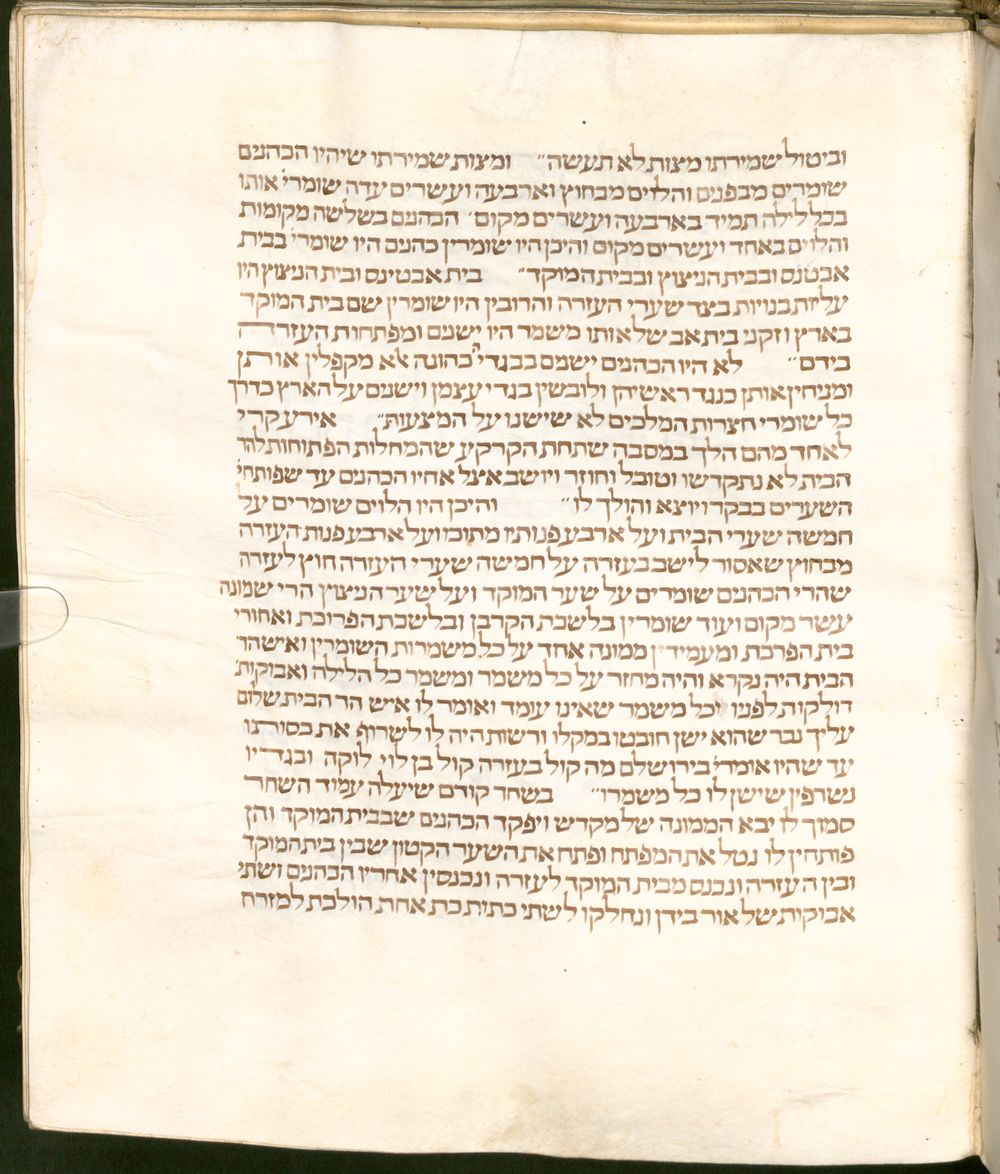 וביטול שמירתו מצות לא תעשה״ ומצות שמירתו שיהיו הכהנים
שומרים מבפנים והלוים מבחוץ וארבעה ועשרים עדה שומרי׳ אותו
בכל לילה תמיד בארבעה ועשרים מקום׳ הכהנים בשלשה מקומות
והלוים באחד ועשרים מקום והיכן היו שומרין כהנים היו שומרי׳ בבית
אבטנס ובבית הניצוץ ובבית המוקד״ בית אבטינס ובית הניצוץ היו
עליות בנויות בצד שערי העזרה והרובין היו שומרין שם בית המוקד
בארץ וזקני בית אב של אותו משמר היו ישנים ומפתחות העזרה
בידם״ לא היו הכהנים ישנים בבגדי כהונה אלא מקפלין אותן
ומניחין אותן כנגד ראשיהן ולובשין בגדי עצמן וישנים על הארץ כדרך
כל שומרי חצרות המלכים לא שישנו על המצעות״ אירע קרי
לאחד מהם הלך במסבה שתחת הקרקע שהמחלות הפתוחות להר
הבית לא נתקדשו וטובל וחוזר ויושב אצל אחיו הכהנים עד שפותחי׳
השערים בבקר ויוצא והולך לו״ והיכן היו הלוים שומרים על
חמשה שערי הבית ועל ארבע פנותיו מתוכו ועל ארבע פנות העזרה
מבחוץ שאסור לישב בעזרה על חמישה שערי העזרה חוץ לעזרה
שהרי הכהנים שומרים על שער המוקד ועל שער הניצוץ הרי שמונה
עשר מקום ועוד שומרין בלשכת הקרבן ובלשכת הפרוכת ואחורי
בית הפרכת ומעמידין ממונה אחד על כל משמרות השומרין ואיש הר
הבית היה נקרא והיה מחזר על כל משמר ומשמר כל הלילה ואבוקות
דולקות לפניו וכל משמר שאינו עומד ואומר לו איש הר הבית שלום
עליך נכר שהוא ישן חובטו במקלו ורשות היה לו לשרוף את כסותו
עד שהיו אומרי׳ בירושלם מה קול בעזרה קול בן לוי לוקה ובגדיו
נשרפין שישן לו כל משמרו״ בשחר קודם שיעלה עמוד השחר
סמוך לו יבא הממונה של מקדש ויפקד הכהנים שבבית המוקד והן
פותחין לו נטל את המפתח ופתח את השער הקטון שבין בית המוקד
ובין העזרה ונכנס מבית המוקד לעזרה ונכנסין אחריו הכהנים ושתי
אבוקות של אור בידן ונחלקו לשתי כתות כת אחת הולכת למזרח